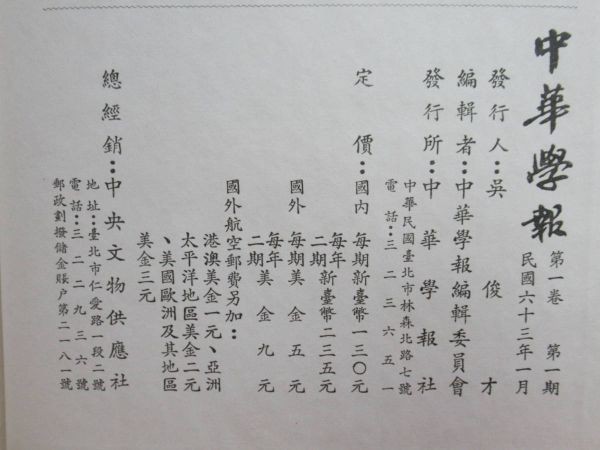 中華學報
第一卷 第一期
民國六十三年一月
發行人：吳俊才
編輯者：中華學報編輯委員會
發行所：中華學報社
中華民國臺北市林森北路七號
電話：三二三六五一
定價：國內 每期新臺幣一三〇元
每年二期 新臺幣二三五元
國外 每期美金五元
每年二期 美金九元
國外航空郵費另加：
港澳美金一元、亞洲
太平洋地區美金二元
、美國歐洲及其地區
美金三元
總經銷：中央文物供應社
地址：臺北市仁愛路一段二號
電話：三二二九三六號
郵政劃撥儲金賬戶第二一八一號